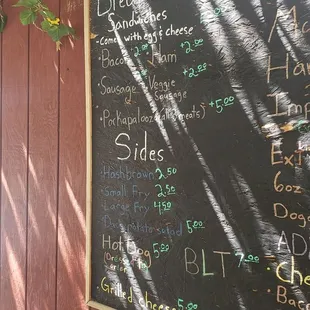 Sandwiches
Come with egg & cheese
Bacon +2.00 Ham +2.00
Sausage Veggie Sausage +2.00
Porkapalooza (all 3 meats) +5.00
Sides
Hashbrown 2.50
Small Fry 2.50
Large Fry 4.50
potato salad 5.00
Hot Dog 5.00
BLT 7.00
Grilled cheese 5.00
Ham
Imp
Ext
6oz
Dog
AD
Che
Baco